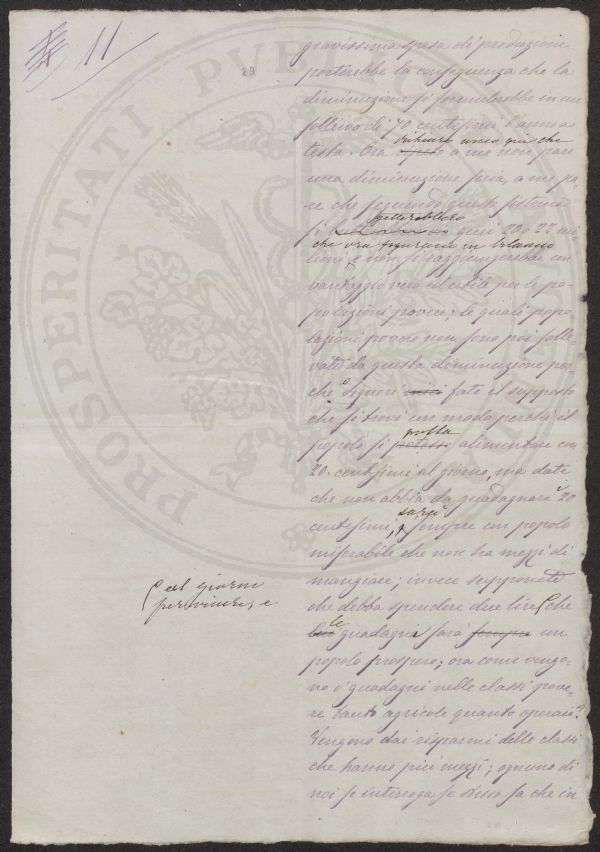 11
29
PROSPERITATI PVBL
gravissima spesa di produzione
porterebbe la conseguenza che la
diminuzione si formulerebbe in un
sollievo di 70 centesimi l'anno a
testa. Ora a me non pare
una diminuzione seria, a me pa-
re che seguendo questo sistema
si quei 20 o 22 mi-
che ora figurano in bilancio
lioni, e non si raggiungerebbe un
vantaggio vero ed utile per le po-
polazioni povere; le quali popo-
lazioni povere non sono poi solle-
vate da questa diminuzione per-
chè o Signori fate il supposto
che si trovi un modo perchè il
possa
popolo si potesse alimentare con
20 centesimi al giorno, ma date
che non abbia da guadagnare 20
sarà
centesimi, sempre un popolo
miserabile che non ha mezzi di
mangiare; invece supponete
che debba spendere due lire che
al giorno
per vivere, e
le
guadagni sarà sempre un
popolo prospero; ora come vengo-
no i guadagni nelle classi pove-
re tanto agricole quanto operaie?
Vengono dai risparmi delle classi
che hanno più mezzi; ognuno di
noi se interroga se stesso sa che in